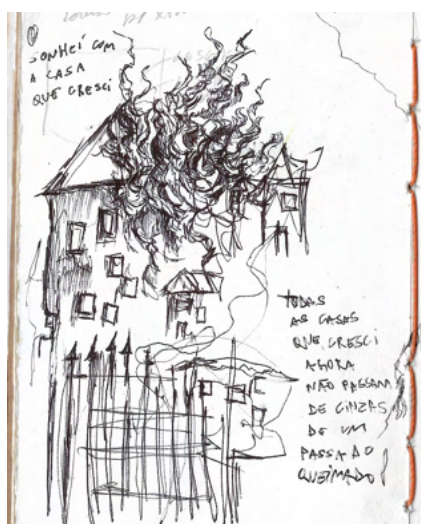 SONHEI COM
A CASA
QUE CRESCI
TODAS
AS CASAS
QUE CRESCI
AGORA
NÃO PASSAM
DE CINZAS
DE UM
PASSADO
QUEIMADO!